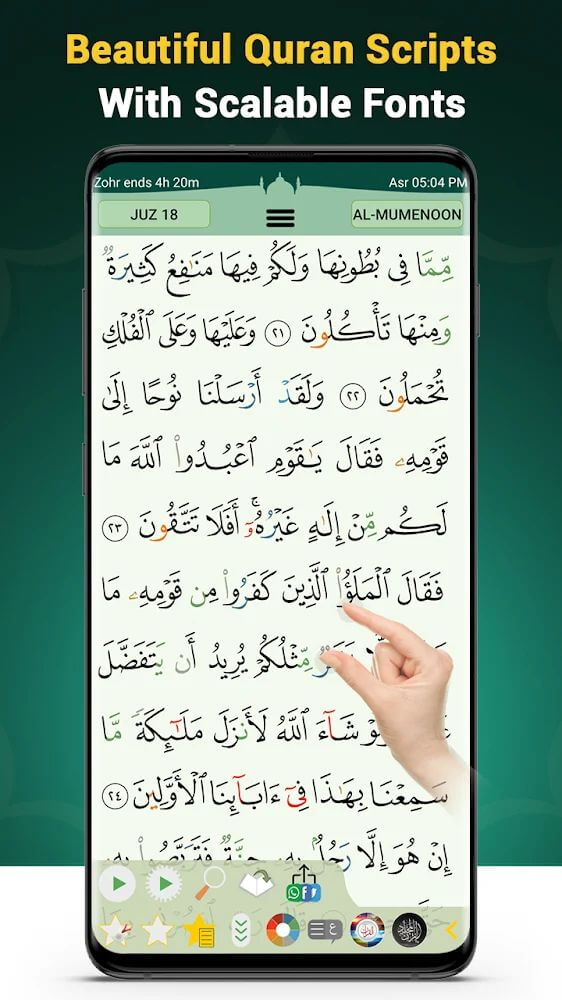 Beautiful Quran Scripts
With Scalable Fonts
Zohr ends 4h 20m
Asr 05:04 PM
JUZ 18
AL-MUMENOON
مِّمَّا فِى بُطُونِهَا وَلَكُمْ فِيهَا مَنَٰفِعُ كَثِيرَةٌ
وَمِنْهَا تَأْكُلُونَ ٢١ وَعَلَيْهَا وَعَلَى ٱلْفُلْكِ
تُحْمَلُونَ ٢٢ وَلَقَدْ أَرْسَلْنَا نُوحًا إِلَىٰ
قَوْمِهِۦ فَقَالَ يَٰقَوْمِ ٱعْبُدُوا۟ ٱللَّهَ مَا
لَكُم مِّنْ إِلَٰهٍ غَيْرُهُۥٓ ۚ أَفَلَا تَتَّقُونَ ٢٣
فَقَالَ ٱلْمَلَؤُا۟ ٱلَّذِينَ كَفَرُوا۟ مِن قَوْمِهِۦ مَا
مِّثْلُكُمْ يُرِيدُ أَن يَتَفَضَّلَ
شَآءَ ٱللَّهُ لَأَنزَلَ مَلَٰٓئِكَةً مَّا
سَمِعْنَا بِهَٰذَا فِىٓ ءَابَآئِنَا ٱلْأَوَّلِينَ ٢٤
إِنْ هُوَ إِلَّا رَجُلٌۢ بِهِۦ جِنَّةٌ فَتَرَبَّصُوا۟ بِهِۦ